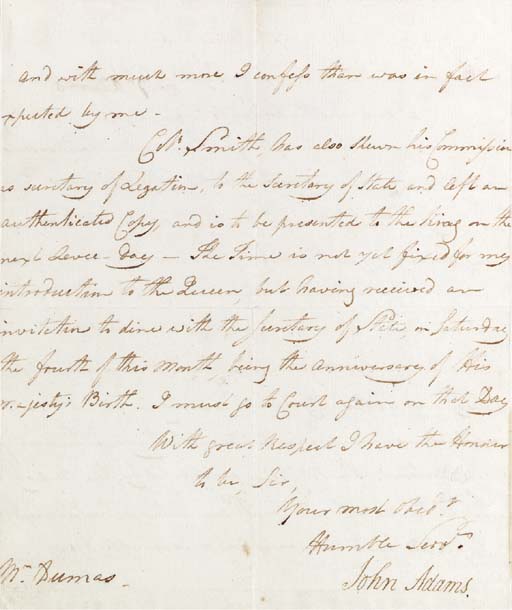 and with much more I confess than was in fact
xpected by me -
Col.ͬ Smith, has also shewn his Commission
as secretary of Legation, to the Secretary of State and left an
authenticated Copy, and is to be presented to the King on the
next Levee-day - The Time is not yet fixed for my
introduction to the Queen, but having received an
invitation to dine with the Secretary of State, on Saturday
the fourth of this Month, being the anniversary of His
Majesty's Birth. I must go to Court again on that Day
With great respect I have the Honour
to be, Sir,
Your most Obed.ͭ
Humble Serv.ͭ
John Adams.
Mr. Dumas.